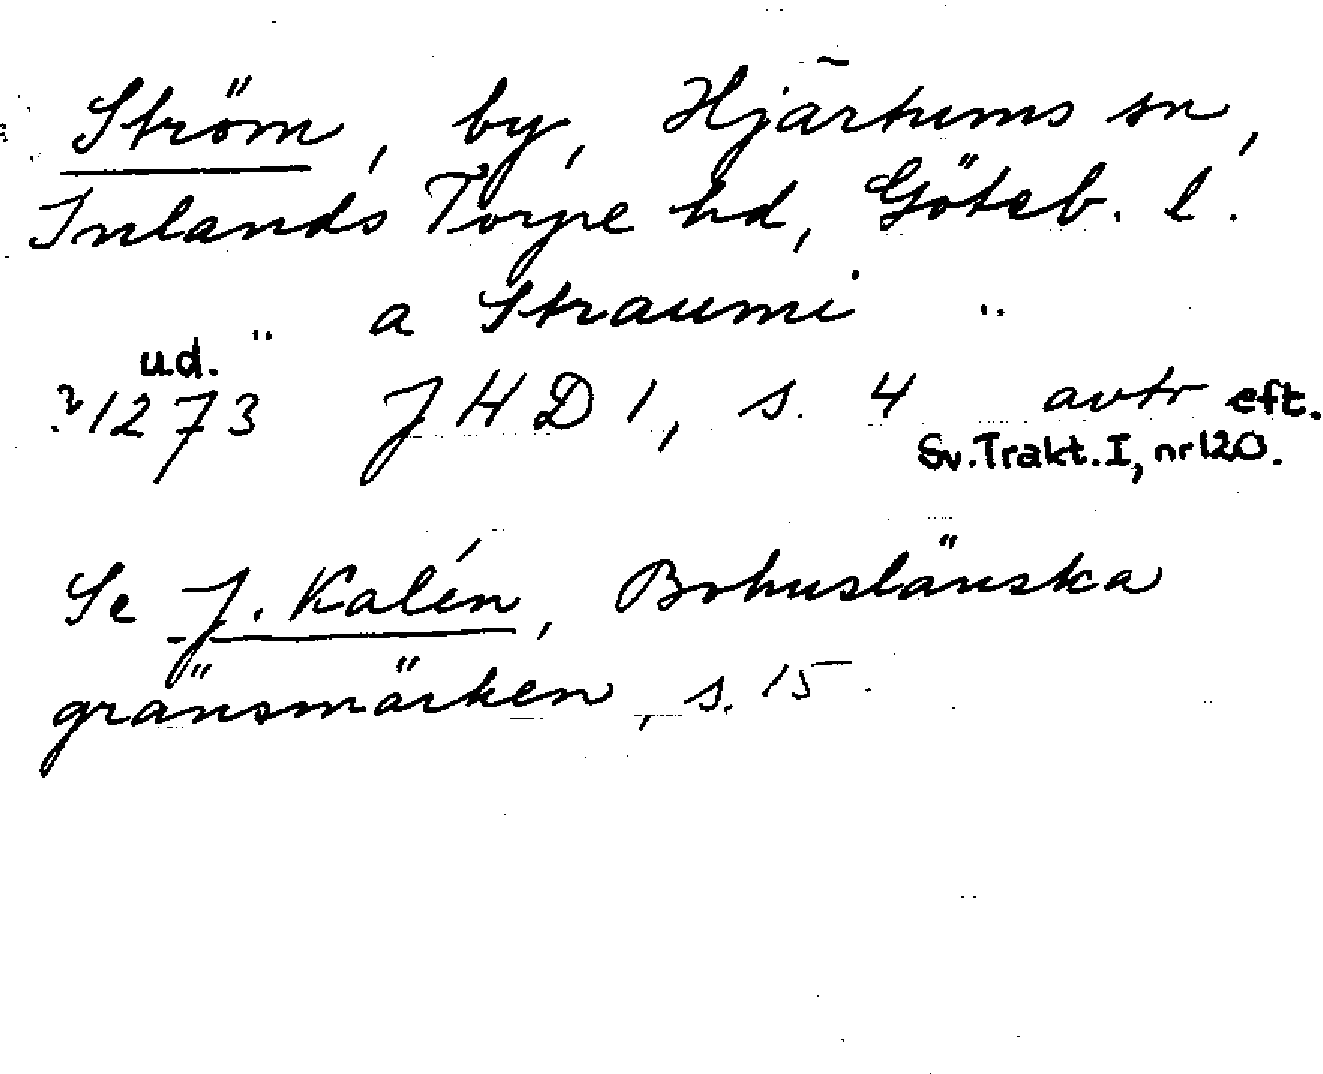 Ström, by, Hjärtums sn,
Inlands Torpe hd, Göteb. l.
" a Straumi "
u.d.
?1273 JHD 1, s. 4 avtr eft.
Sv.Trakt.I, nr 120.
Se J. Kalén, Bohuslänska
gränsmärken, s. 15.